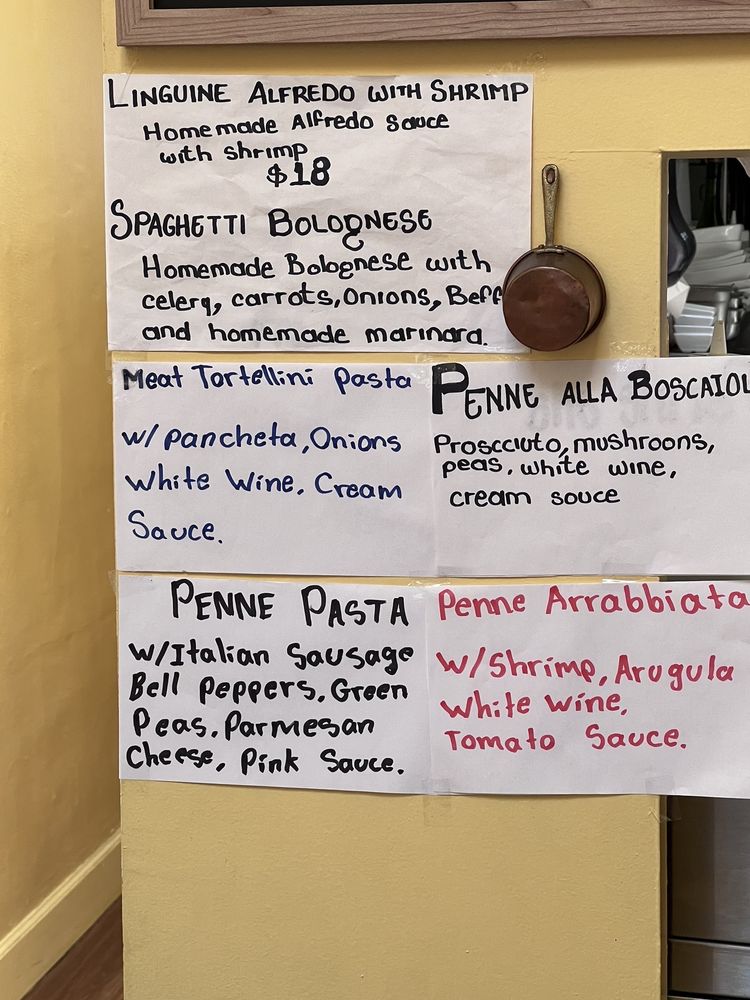 LINGUINE ALFREDO WITH SHRIMP
Homemade Alfredo Sauce
with shrimp
$18
SPAGHETTI BOLOGNESE
Homemade Bolognese with
celery, carrots, Onions, Beff
and homemade marinara.
Meat Tortellini Pasta
w/ Pancheta, Onions
White Wine. Cream
Sauce.
PENNE ALLA BOSCAIOL
Proscciuto, mushroons,
peas, white wine,
cream souce
PENNE PASTA
w/Italian Sausage
Bell Peppers, Green
Peas, Parmesan
Cheese, Pink Sauce.
Penne Arrabbiata
w/Shrimp, Arugula
White Wine,
Tomato Sauce.